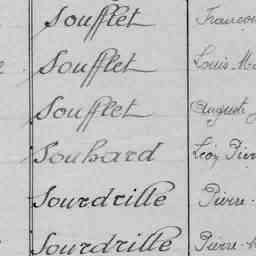 Soufflet Françou
Soufflet Louis Ma
Soufflet Auguste J
Souhard Léon Pier
Sourdrille Pierre-
Sourdrille Pierre-M